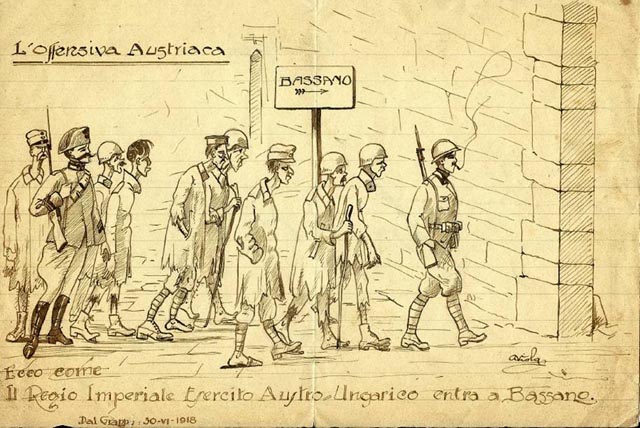 L'Offensiva Austriaca
BASSANO
Ecco come
Il Regio Imperiale Esercito Austro-Ungarico entra a Bassano.
Dal Grappa, 30-VI-1918